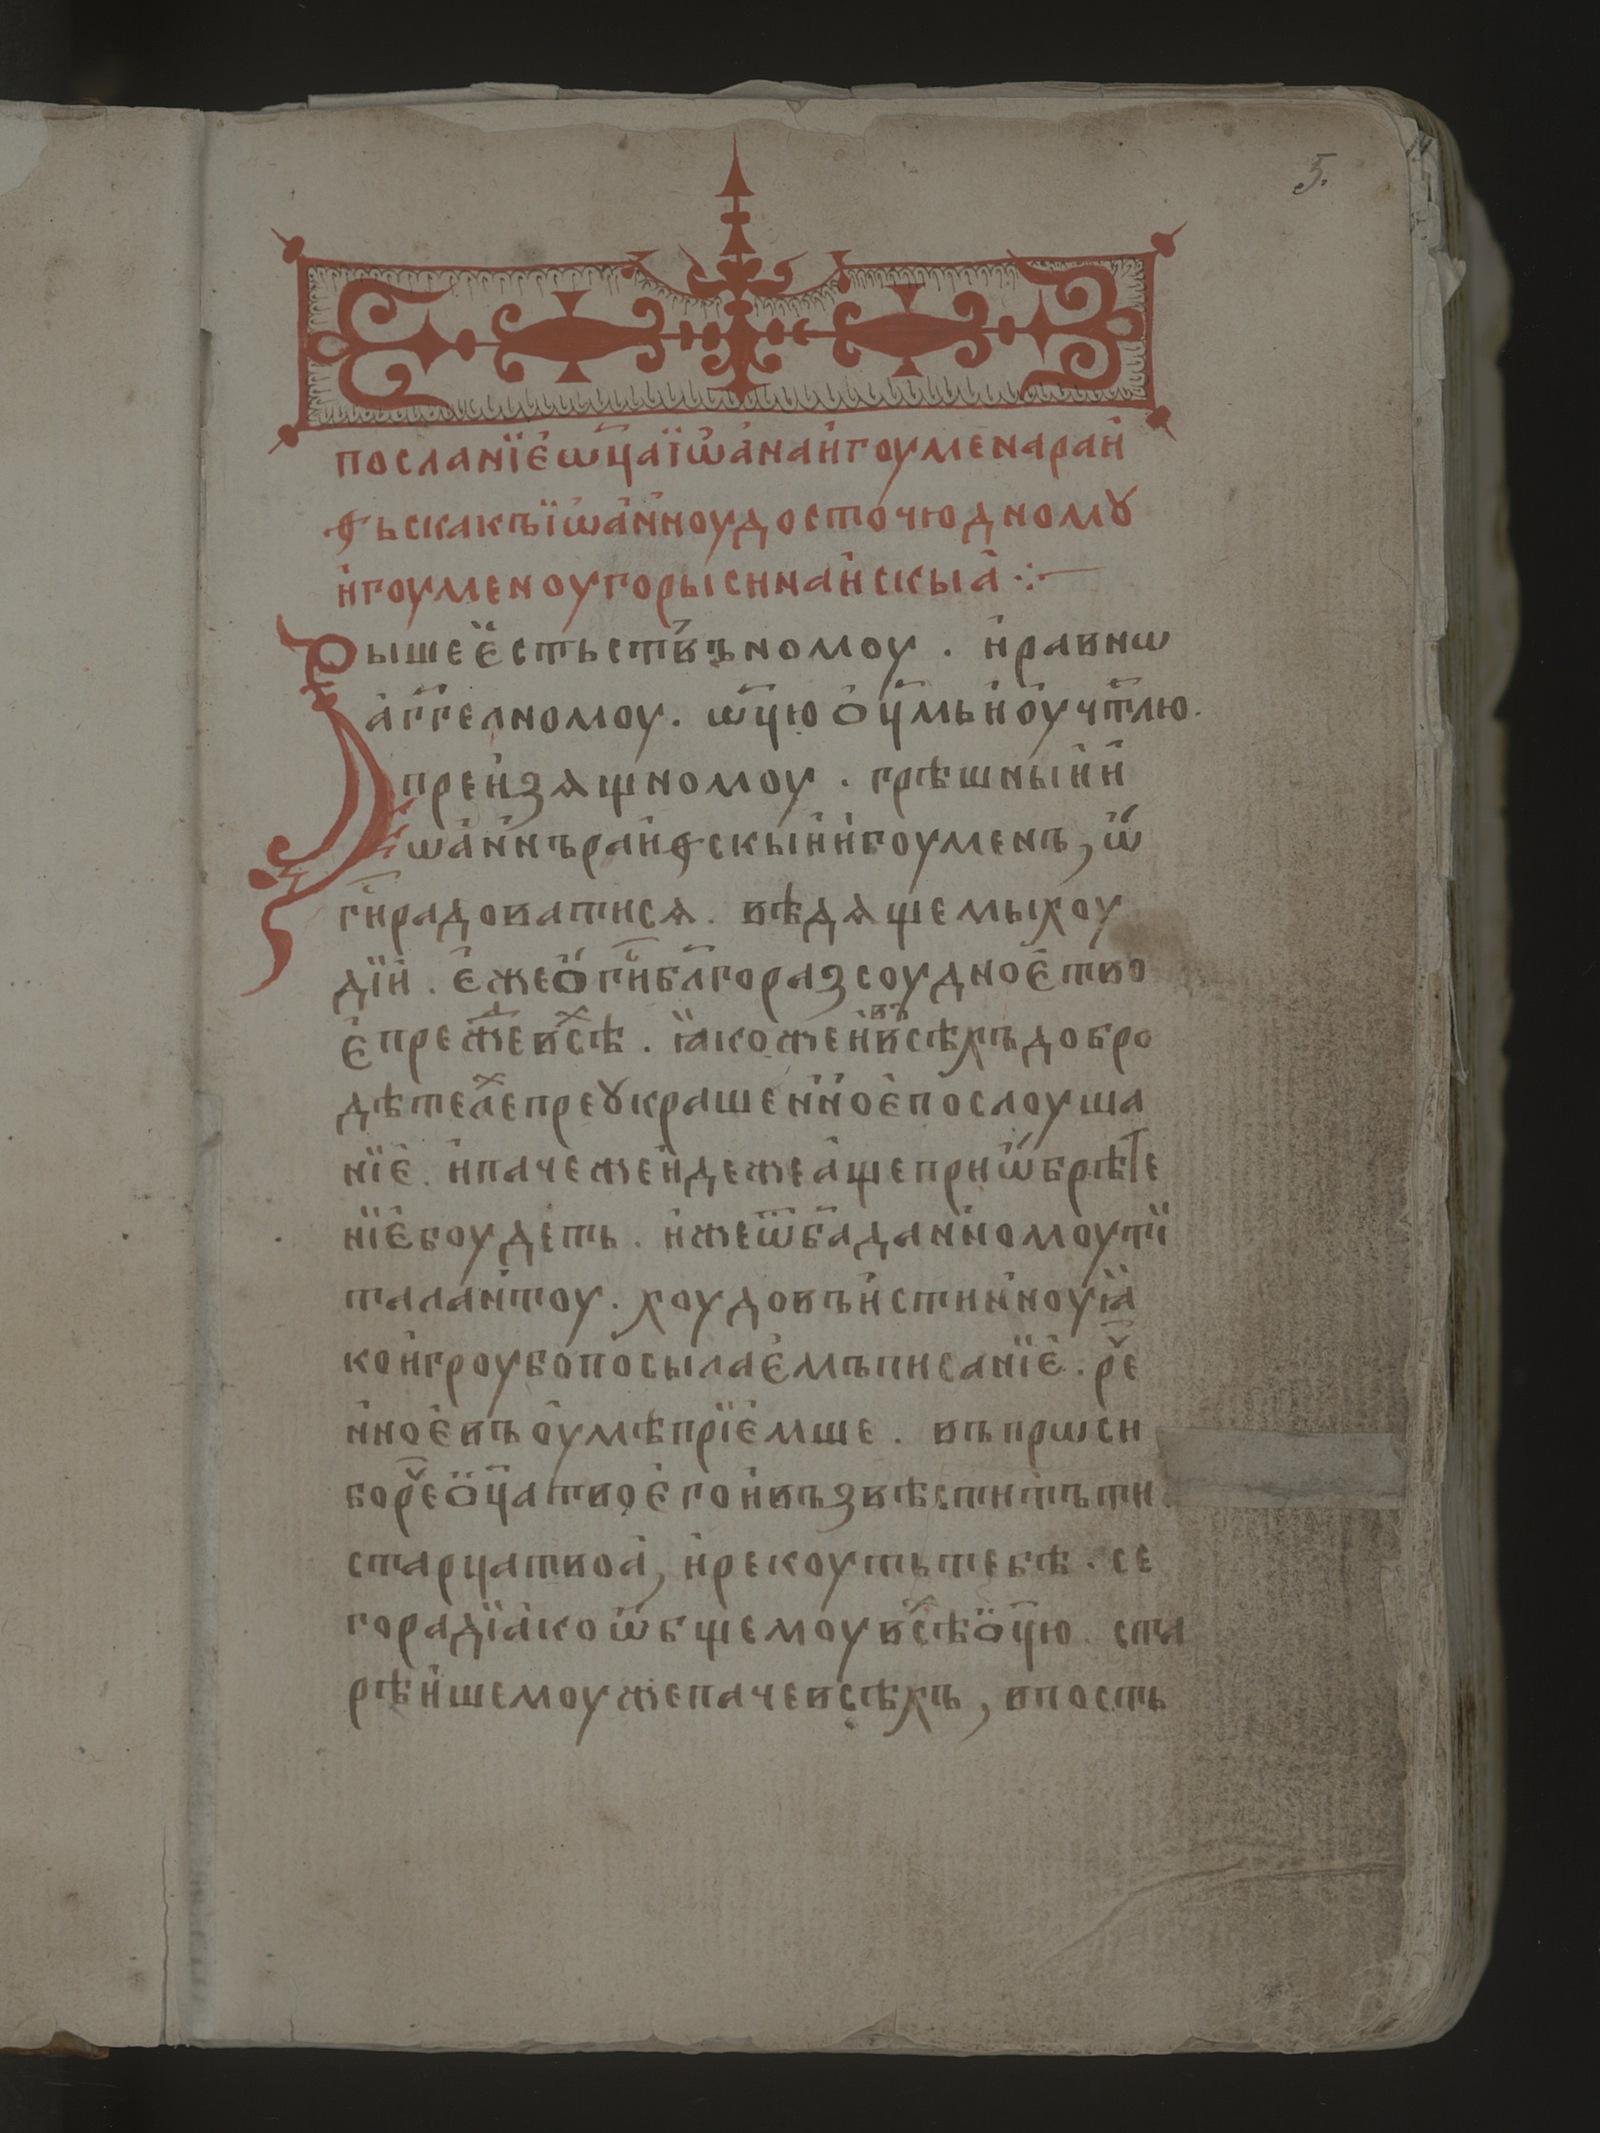 5.
посланїе ѿца їѡана игоумена раи
ѳьска къ їѡанноу досточюдномꙋ
игоуменоу горы синаискыа
Вышеестьствъномоу . и равнѡ
аггелномоу . ѿцю ѻцмь и оучтлю .
преизѧщномоу . грѣшныи и
ѡаннъ раиѳскыи игоуменъ , ѡ
ги радоватисѧ . вѣдѧще мы хоу
дїи . еже ѻ ги блгоразсоудное тво
е прежⷣе всѣⷯ . ꙗкоже и въ всѣхъ добро
дѣтелеⷯ преꙋкрашенное послоуша
нїе . и паче же идеже аще приѡбрѣте
нїе боудеть . иже ѿ ба данномоу ти
талантоу . хоудо въистинноу ꙗ
ко и гроубо посылаемъ писанїе . рⷱе
нное въ оумѣ прїемше . въпрѡси
бо рⷱе ѻца твоего и възвѣститъ ти .
старца твоа , и рекоуть тебѣ . се
го радї ако ѡбщемоу всѣⷯ ѻцю . ста
рѣишемоу же паче всѣхъ , в пость